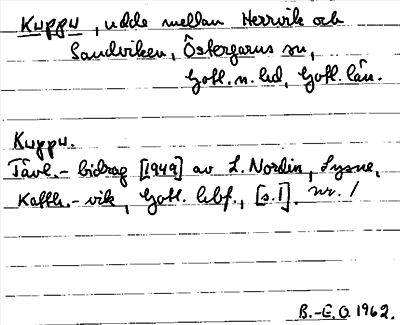 Kuppu, udde mellan Herrvik och
Sandviken, Östergarns sn,
Gotl. n. hd, Gotl. län.
Kuppu.
Tävl.- bidrag [1949] av L. Nordin, Sysne,
Katth.- vik, Gotl. hbf., [s. 1]. nr. 1
B.-E. O. 1962.